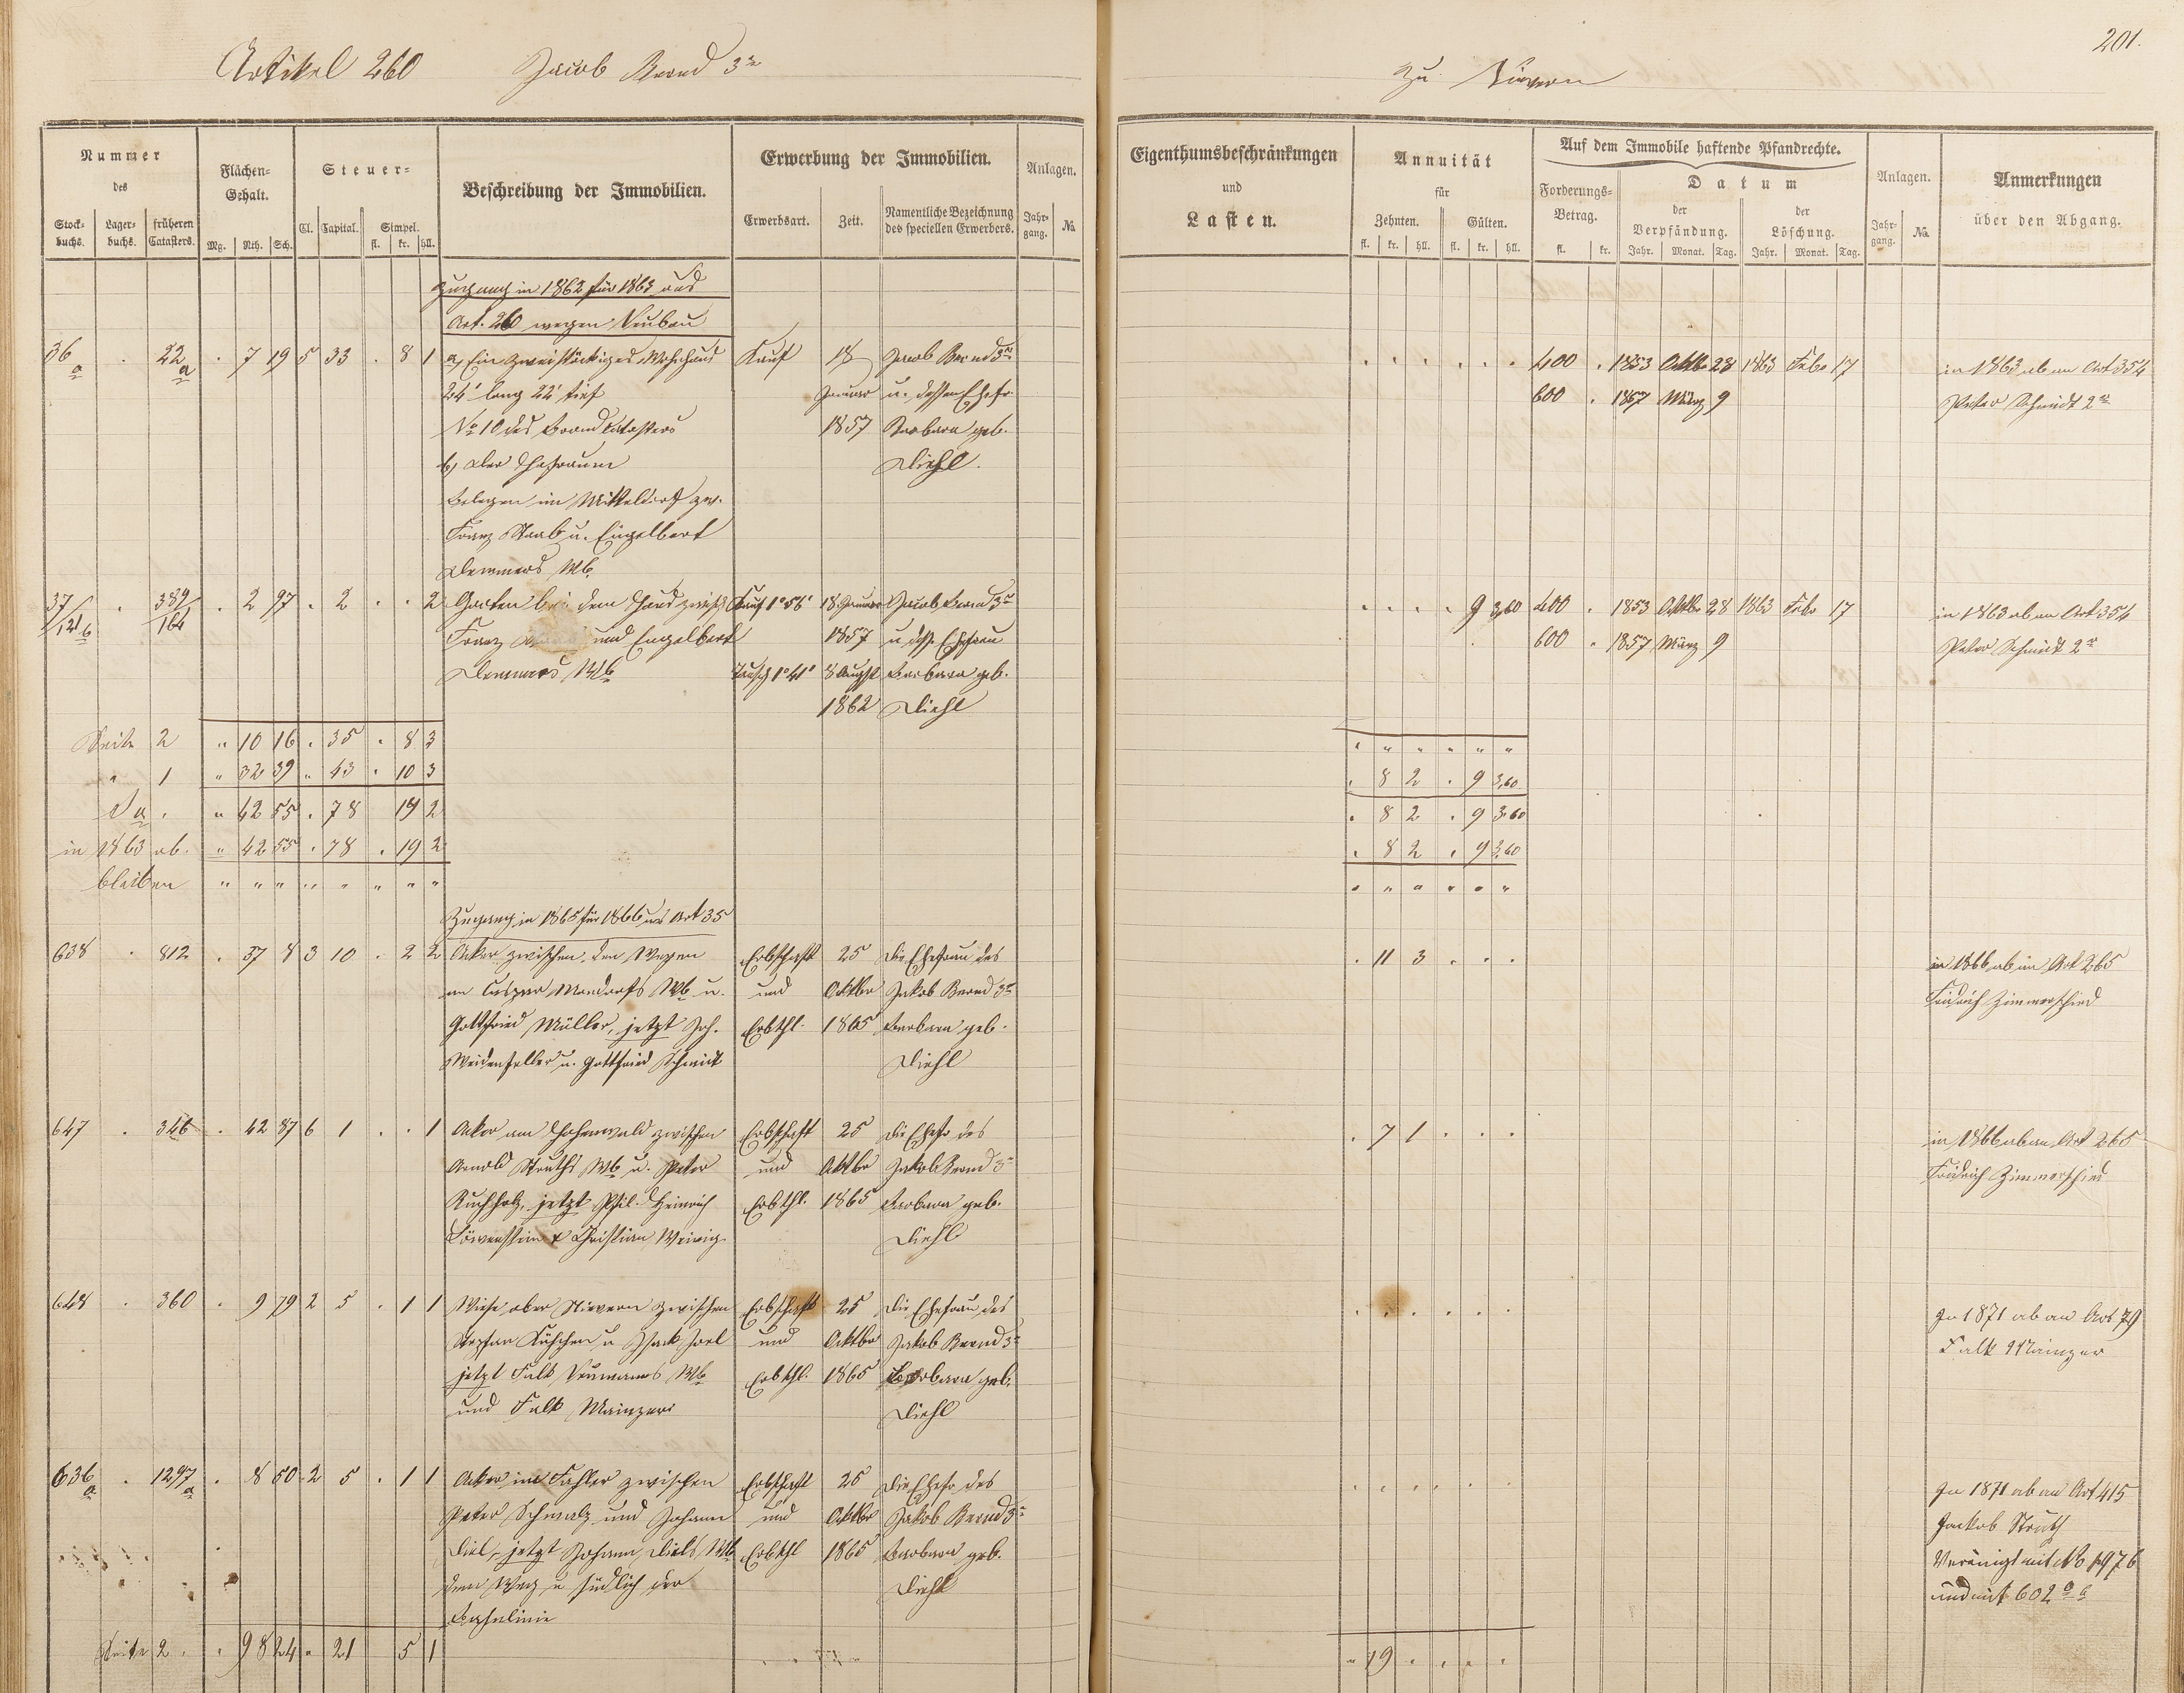 201.
Artikel 260 Jacob Bernd 3r
zu Nievern
Nummer
des
Stock-buchs. Lager-buchs. früheren Catasters.
Flächen-Gehalt.
Mg. Rth. Sch.
Steuer-
Cl. Capital. Simpel.
fl. kr. hll.
Beschreibung der Immobilien.
Erwerbung der Immobilien.
Erwerbsart. Zeit. Namentliche Bezeichnung des speciellen Erwerbers.
Anlagen.
Jahr-gang. No.
Eigenthumsbeschränkungen
und
Lasten.
Annuität
für
Zehnten. Gülten.
fl. kr. hll. fl. kr. hll.
Auf dem Immobile haftende Pfandrechte.
Forderungs-Betrag.
fl. kr.
Datum
der Verpfändung. der Löschung.
Jahr. Monat. Tag. Jahr. Monat. Tag.
Anlagen.
Jahr-gang. No.
Anmerkungen
über den Abgang.
Zugang in 1862 für 1863 aus
Art. 260 wegen Neubau
36a . 22a . 7 19 5 33 . 8 1 a, Ein zweistöckiges Wohnhaus Kauf 18 Jacob Bernd 3r 400 . 1853 Oktbr 28 1863 Febr 17 in 1863 ab an Art 354
24' lang 22' tief Januar u. dessen Ehefr. 600 . 1857 März 9 Peter Schmidt 2r
No 10 des Brandcatasters 1857 Barbara geb.
b, Der Hofraum Diehl.
Belegen im Mitteldorf zw.
Franz Staab u. Engelbert
Demmers Wb.
37/121b . 389/164 . 2 97 . 2 . . 2 Garten bei dem Haus zwisch Kauf 1° 56' 18 Januar Jacob Bernd 3r . . . . 9 3,60 400 . 1853 Oktbr 28 1863 Febr 17 in 1863 ab an Art 354
Franz und Engelbert 1857 u. dess. Ehefrau 600 . 1857 März 9 Peter Schmidt 2r
Demmers Wb Tausch 1° 41' 8 August Barbara geb.
1862 Diehl
Seite 2 " 10 16 . 35 . 8 3 . " " " " "
" 1 " 32 39 " 43 . 10 3 . 8 2 . 9 3,60
Sa. " 42 55 . 78 19 2 . 8 2 . 9 3,60
in 1863 ab. " 42 55 . 78 . 19 2 . 8 2 . 9 3,60
bleiben " " " " " " " " " " " " " "
Zugang in 1865 für 1866 aus Art 35
638 . 812 . 37 8 3 10 . 2 2 Acker zwischen den Wegen Erbschaft 25 Die Ehefrau des . 11 3 . . . in 1866 ab an Art 265
an Caspar Mondorfs Wb u. und Oktbr Jakob Bernd 3r Fridrich Zimmerschied
Gottfried Müller, jetzt Joh. Erbthl. 1865 Barbara geb.
Weidenfeller u. Gottfried Schmidt Diehl
647 . 346 . 42 87 6 1 . . 1 Acker am Hohenwald zwischen Erbschaft 25 Die Ehefr des . 7 1 . . . in 1866 ab an Art 265
Arnold Struths Wb u. Peter und Oktbr Jakob Bernd 3r Fridrich Zimmerschied
Buchholz, jetzt Phil. Heinrich Erbthl. 1865 Barbara geb.
Löwenstein & Christian Diehl
648 . 360 . 9 79 2 5 . 1 1 Wiese ober Nievern zwischen Erbschaft 25 Die Ehefrau des . . . . . . In 1871 ab an Art 79
Stephan u Isack Joel und Oktbr Jakob Bernd 3r Falk Mainzer
jetzt Falk Neumanns Wb Erbthl. 1865 Barbara geb.
und Falk Mainzer Diehl
636a . 1297a . 8 50 2 5 . 1 1 Acker im Fahler zwischen Erbschaft 25 Die Ehefr des . . . . . . In 1871 ab an Art 415
Peter Schmalz und Johann und Oktbr Jakob Bernd 3r Jackob Struth
Diel, jetzt Johann Diels Wb Erbthl 1865 Barbara geb. Vereinigt mit No 1976
dem Weg u südlich der Diehl und mit 602
Bahnlinie
Seite 2 . . 98 24 " 21 5 1 " 19 . . . .